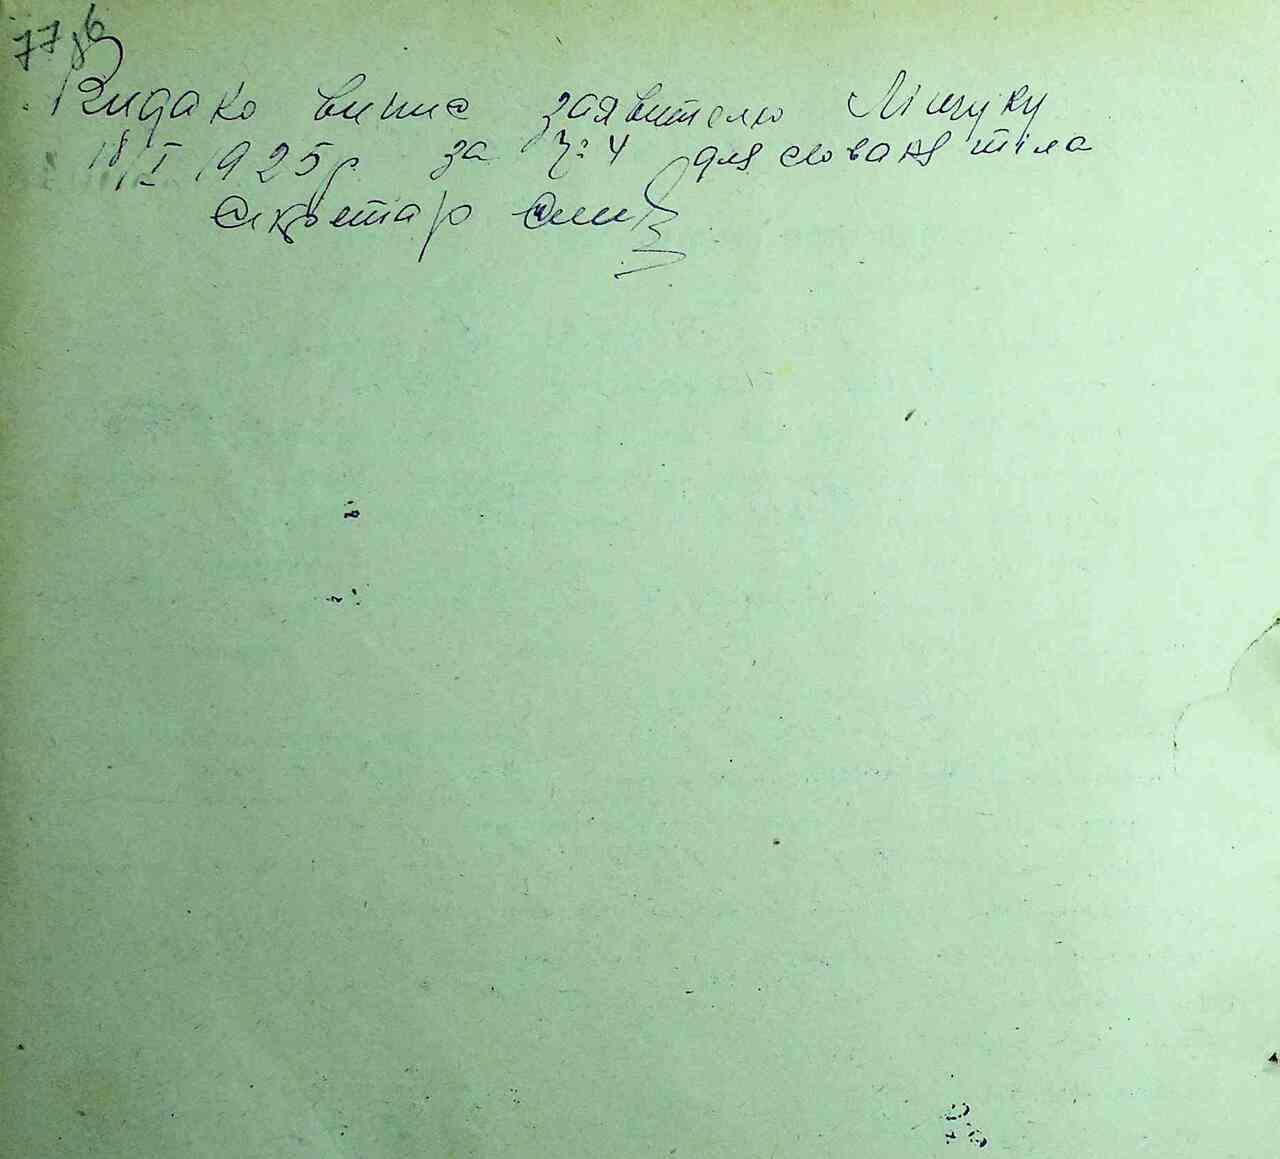 77 зв
Видано випис заявителю Ліщуку
18/I 1925 р за ч: 4 для сховання тіла
Секретар